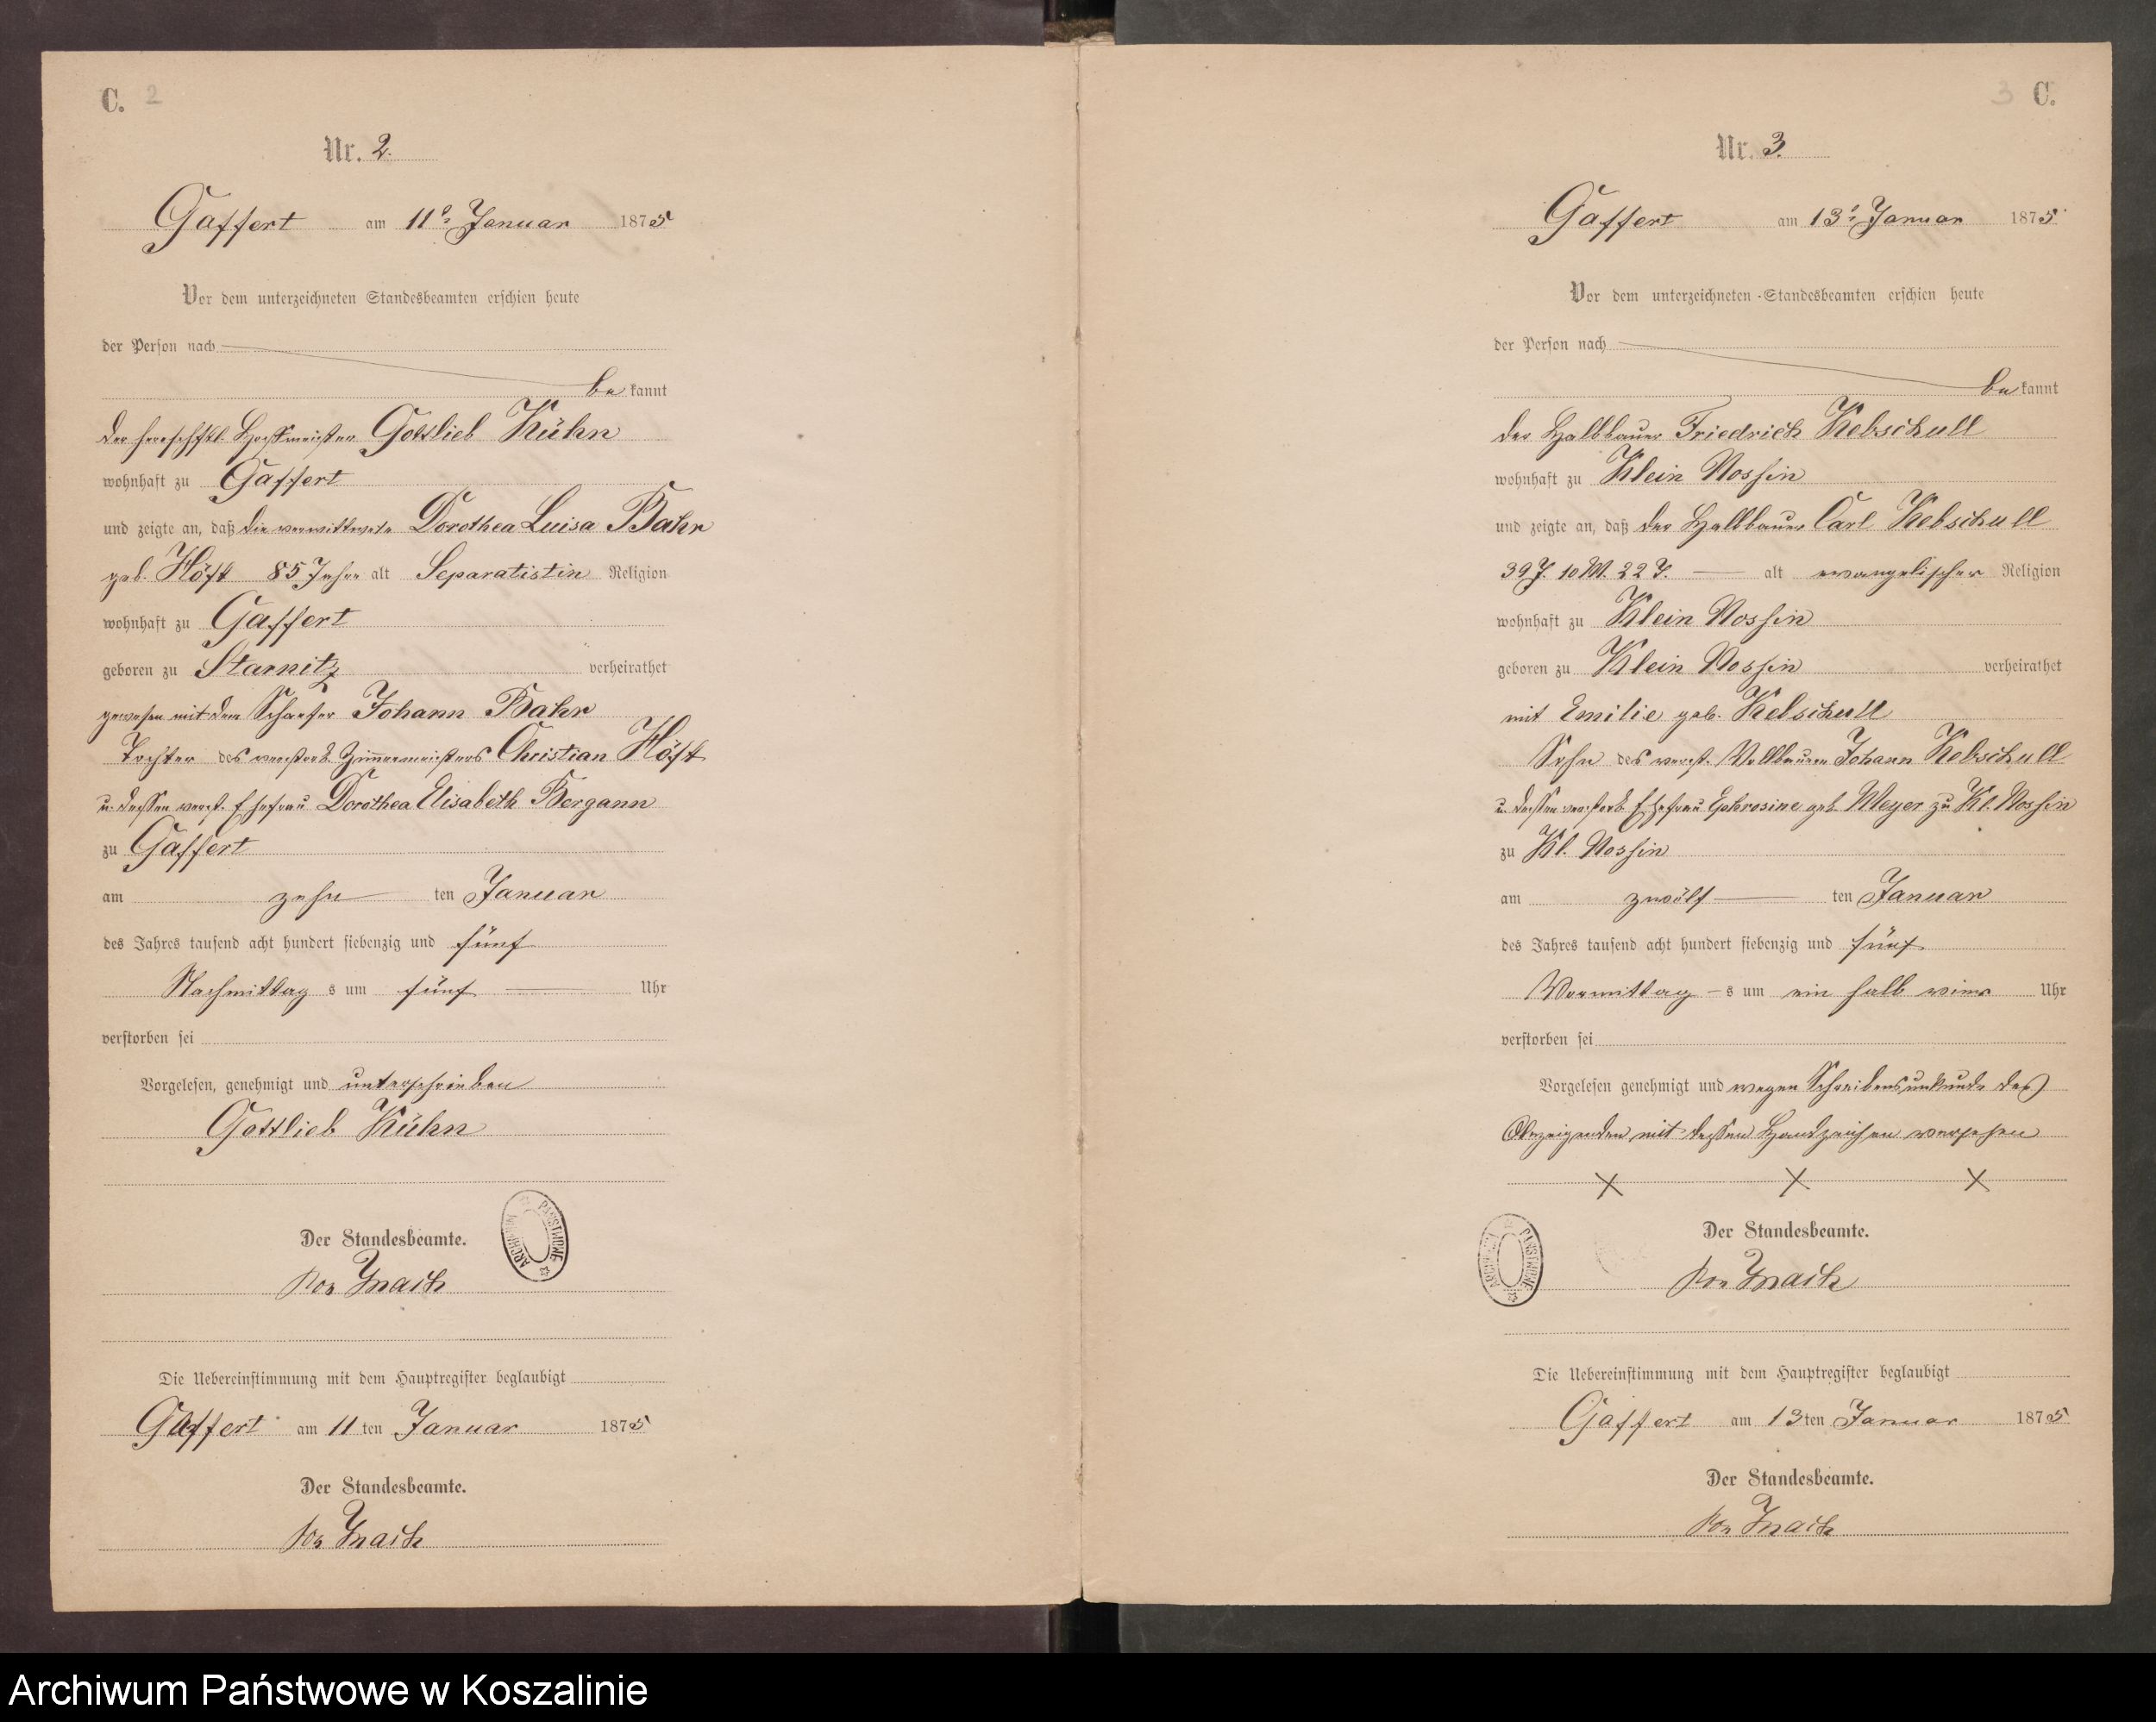 C. 2
Nr. 2.
Gaffert am 11t. Januar 1875
Vor dem unterzeichneten Standesbeamten erschien heute
der Person nach
be kannt
der herrschftl. Gottlieb Kühn
wohnhaft zu Gaffert
und zeigte an, daß die verwittwete Dorothea Luisa Bahr
geb. Höft 85 Jahre alt Separatistin Religion
wohnhaft zu Gaffert
geboren zu Starnitz verheirathet
gewesen mit dem Schaefer Johann Bahr
Tochter des verstorb. Zimmermeisters Christian Höft
u. dessen verst. Ehefrau Dorothea Elisabeth Bergann
zu Gaffert
am zehn ten Januar
des Jahres tausend acht hundert siebenzig und fünf
Nachmittag s um fünf Uhr
verstorben sei
Vorgelesen, genehmigt und unterschrieben
Gottlieb Kühn
ARCHIWUM PAŃSTWOWE
Der Standesbeamte.
von
Die Uebereinstimmung mit dem Hauptregister beglaubigt
Gaffert am 11 ten Januar 1875
Der Standesbeamte.
von
3 C.
Nr. 3.
Gaffert am 13t. Januar 1875
Vor dem unterzeichneten Standesbeamten erschien heute
der Person nach
be kannt
der Halbbauer Friedrich Kebschull
wohnhaft zu Klein Nossin
und zeigte an, daß der Halbbauer Carl Kebschull
39 J. 10 M. 22 T. alt evangelischer Religion
wohnhaft zu Klein Nossin
geboren zu Klein Nossin verheirathet
mit Emilie geb. Kebschull
Sohn des verst. Vollbauern Johann Kebschull
u. dessen verstorb. Ehefrau Ephrosine geb. Meyer zu Kl. Nossin
zu Kl. Nossin
am zwölf ten Januar
des Jahres tausend acht hundert siebenzig und fünf
Vormittag s um ein halb vier Uhr
verstorben sei
Vorgelesen genehmigt und wegen Schreibensunkunde des
Anzeigenden mit dessen Handzeichen versehen
X X X
ARCHIWUM PAŃSTWOWE
Der Standesbeamte.
von
Die Uebereinstimmung mit dem Hauptregister beglaubigt
Gaffert am 13 ten Januar 1875
Der Standesbeamte.
von
Archiwum Państwowe w Koszalinie